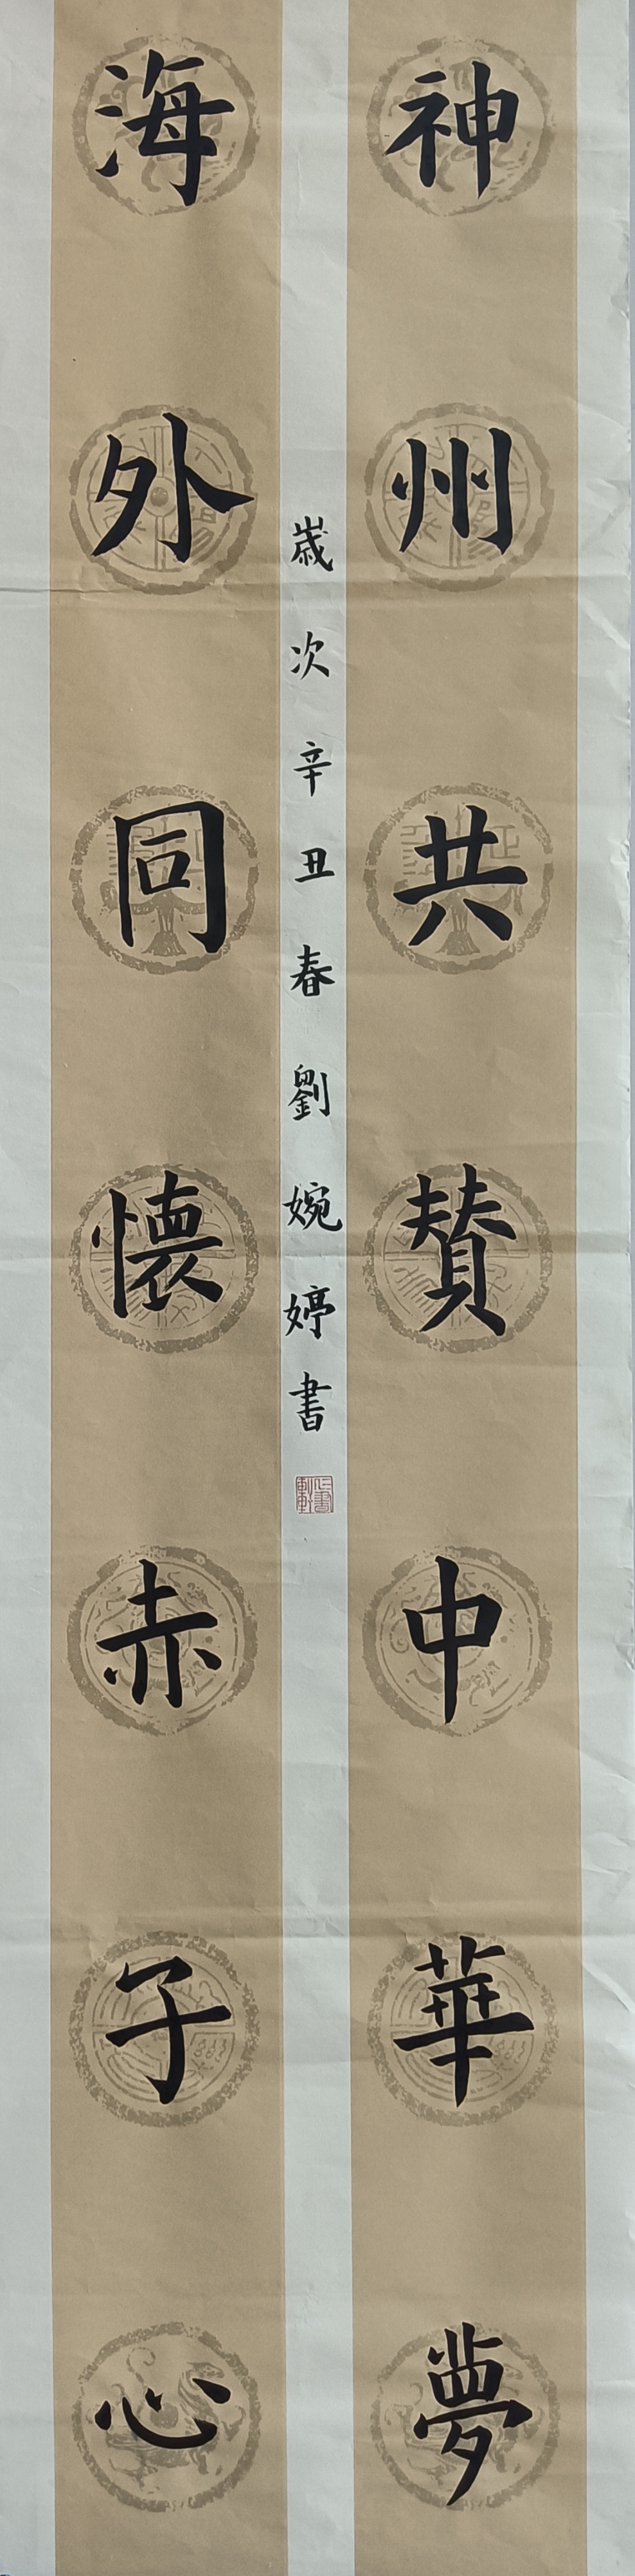 神州共賛中華夢
海外同懐赤子心
歲次辛丑春劉婉婷書